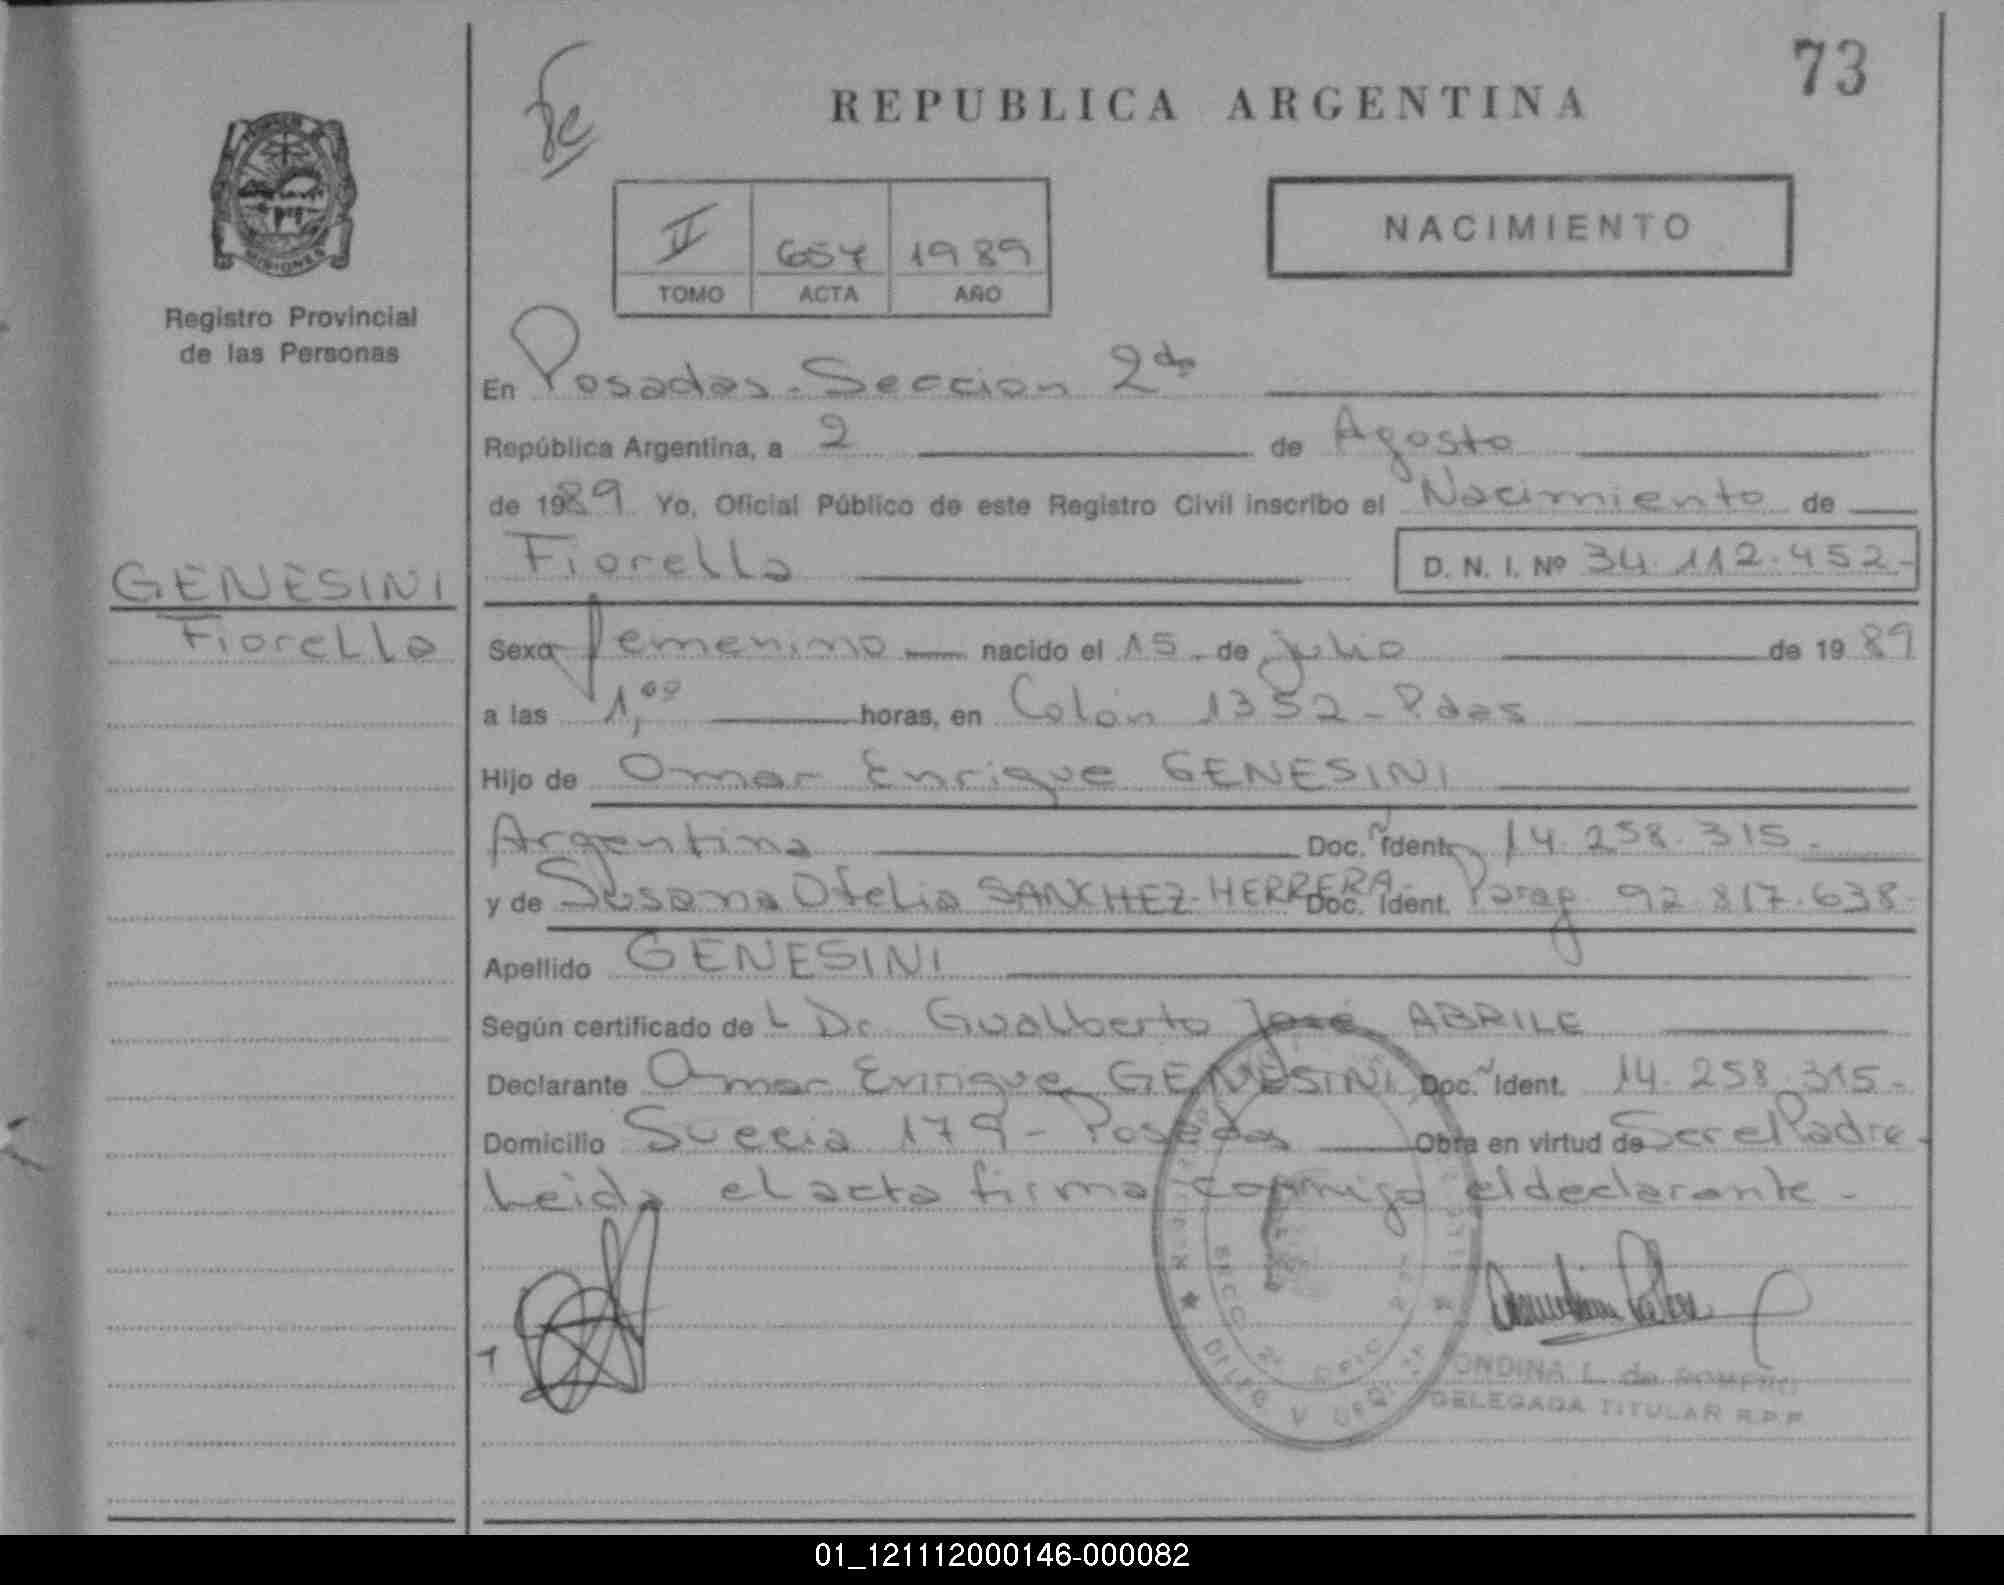 73
REPUBLICA ARGENTINA
NACIMIENTO
II 657 1989
TOMO ACTA AÑO
MISIONES
Registro Provincial
de las Personas
GENESINI
Fiorella
En Posadas - Seccion 2da
República Argentina, a 2 de Agosto
de 1989 Yo, Oficial Público de este Registro Civil inscribo el Nacimiento de
Fiorella D. N. I. Nº 34.112.452-
Sexo femenino nacido el 15 de julio de 1989
a las 1,00 horas, en Colón 1352 - Pdas
Hijo de Omar Enrique GENESINI
Argentina Doc. Ident. 14.258.315-
y de Susana Ofelia SANCHEZ HERRERA Doc. Ident. Parag. 92.817.638-
Apellido GENESINI
Según certificado de L Dr. Gualberto José ABRILE
Declarante Omar Enrique GENESINI Doc. Ident. 14.258.315-
Domicilio Suecia 179 - Posadas Obra en virtud de Ser el Padre-
Leida el acta firma conmigo el declarante-
ONDINA L. de ROMERO
DELEGADA TITULAR R.P.P.
01_121112000146-000082